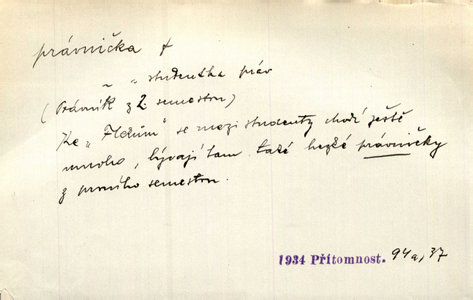 právnička †
~ „ studentka práv
(Právník z 2. semestru)
Ke „Flekům" se mezi studenty chodí ještě
mnoho, bývají tam také hezké právničky
z prvního semestru.
1934 Přítomnost. 94a, 37